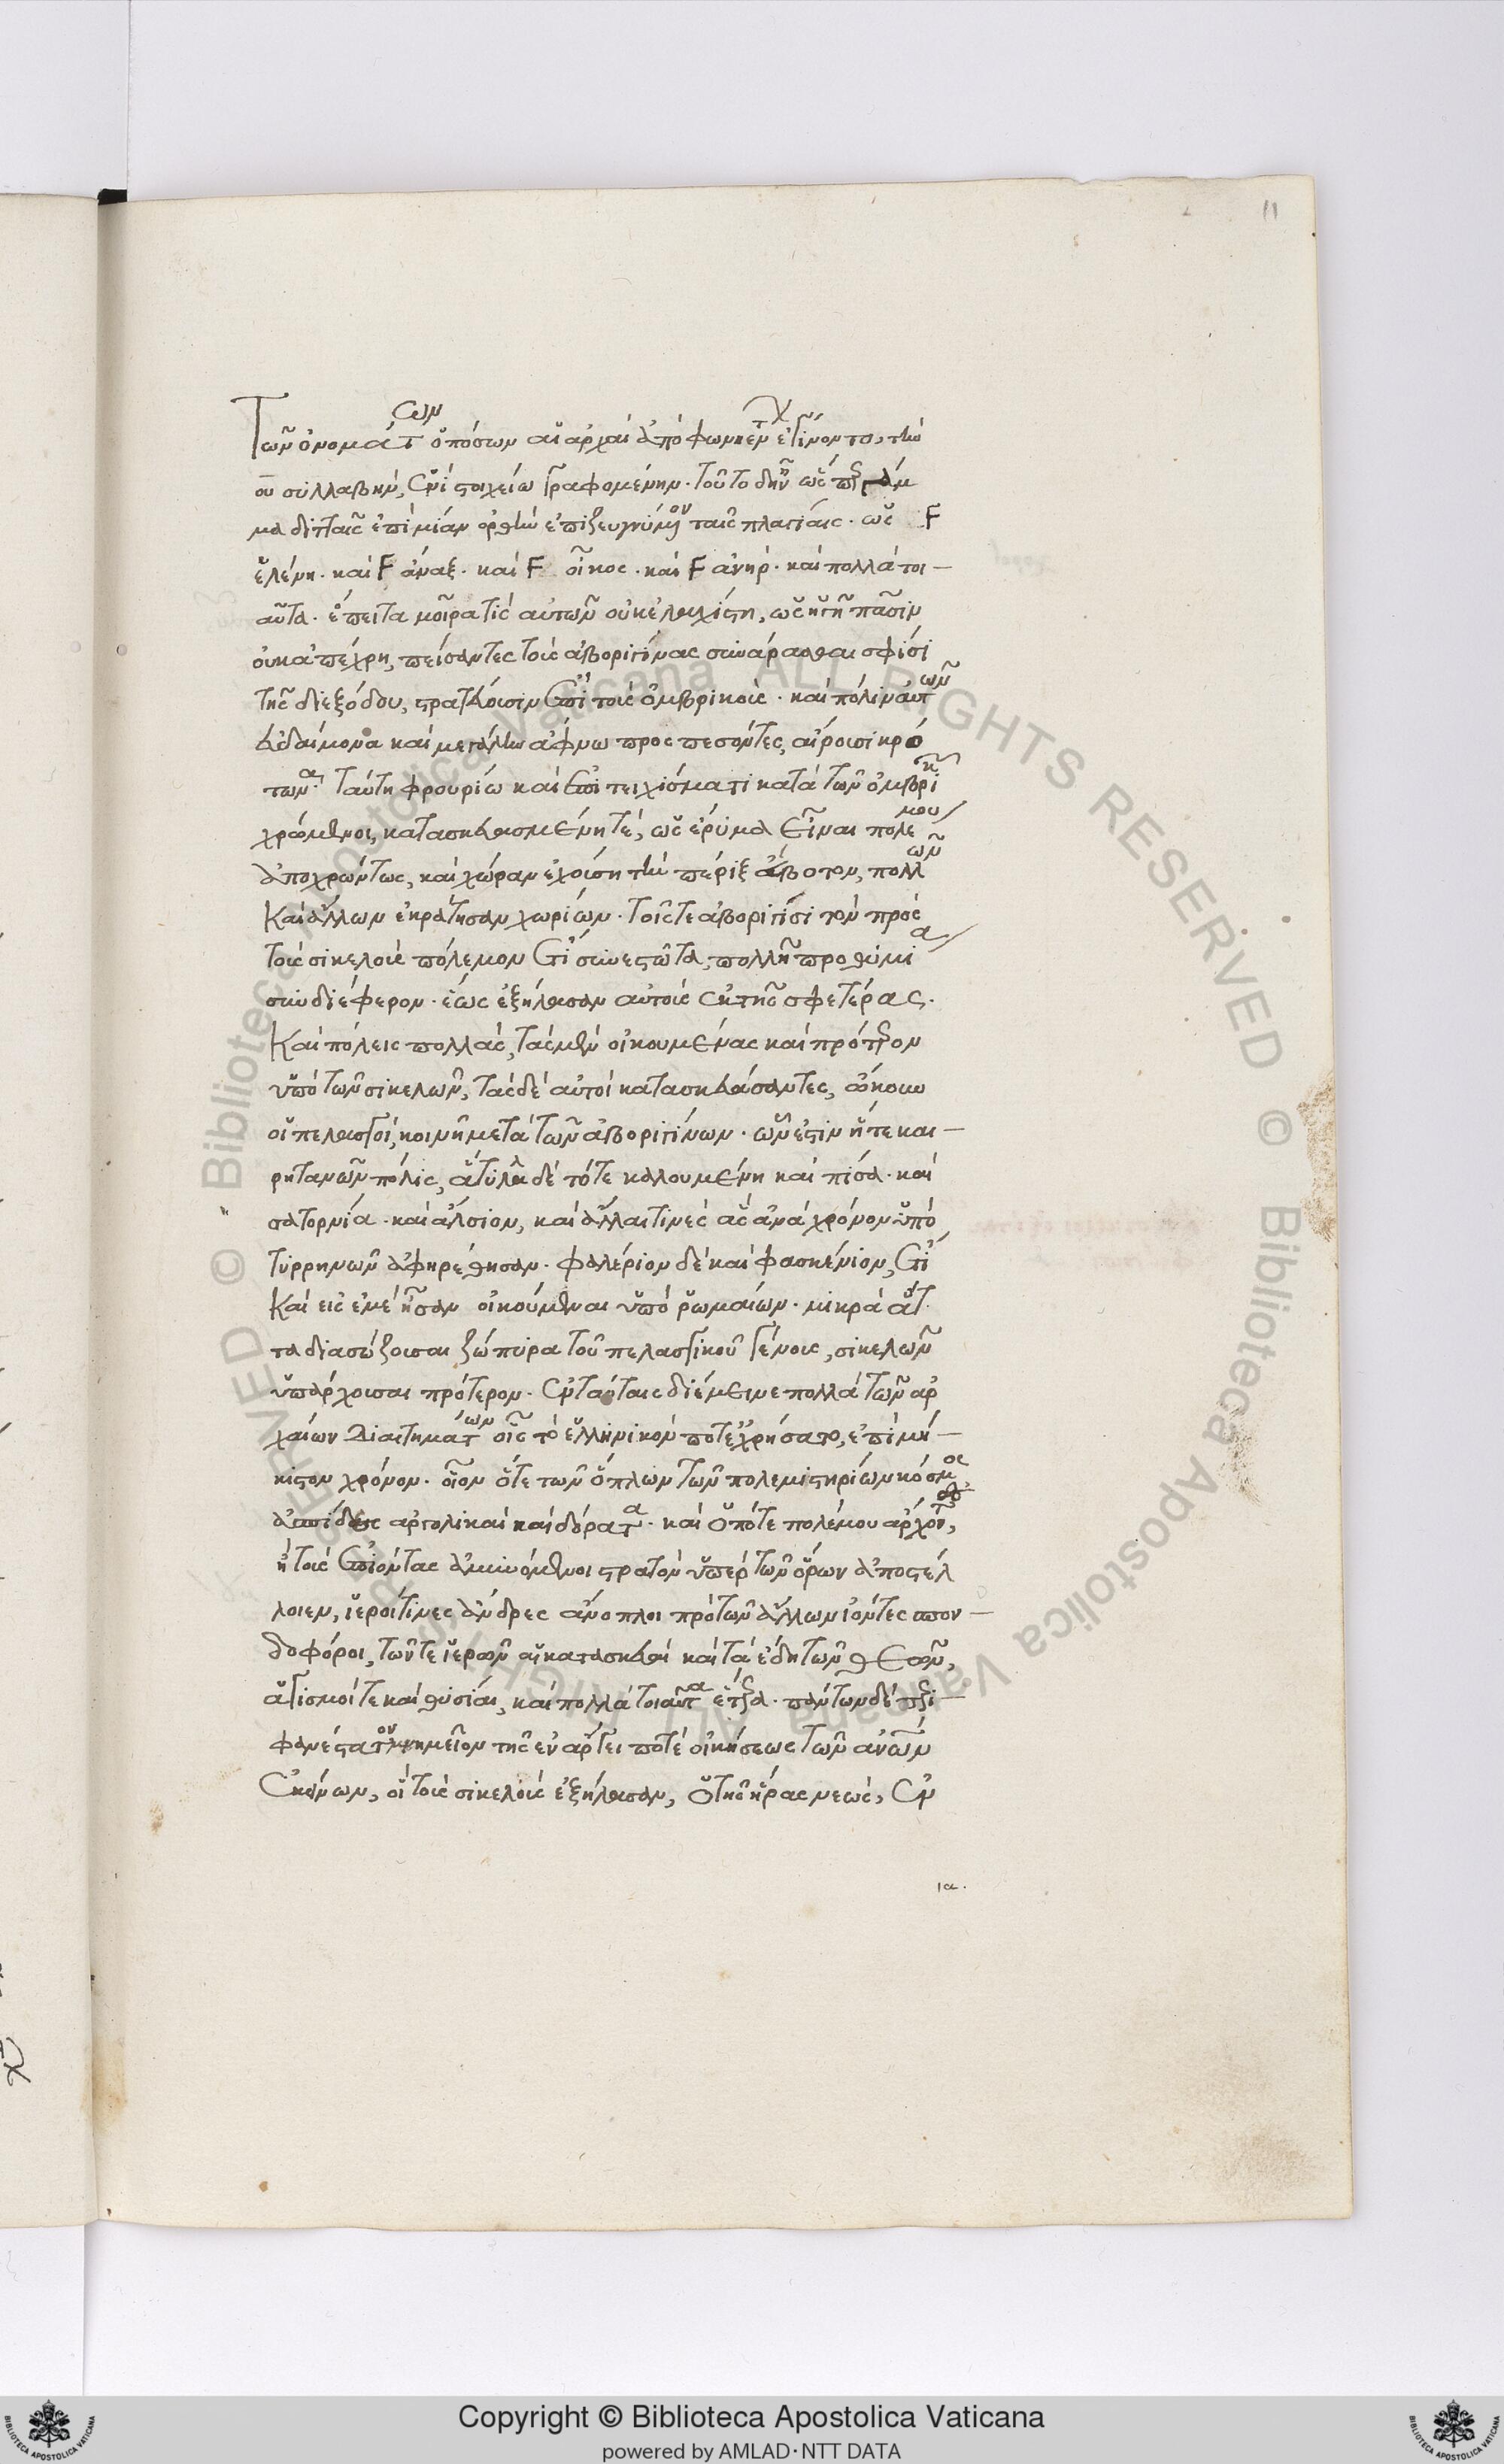 11
Τῶν ὀνομάτων ὁπόσων αἱ ἀρχαὶ ἀπὸ φωνηέντων ἐγίνοντο, τὴν
ου συλλαβὴν, ἑνὶ στοιχείῳ γραφομένην. τοῦτο δ' ἦν ὥσπερ γάμ
μα διτταῖς ἐπὶ μίαν ὀρθὴν ἐπιζευγνύμενον ταῖς πλαγίαις. ὡς F
ἑλένη. καὶ F άναξ. καὶ F οῖκος. καὶ F ἀνήρ. καὶ πολλὰ τοι—
αῦτα. ἔπειτα μοῖρά τις αὐτῶν οὐκ ἐλαχίστη, ὡς ἡ γῆ πᾶσιν
οὐκ ἀπέχρη, πείσαντες τοὺς ἀβοριγίνας συνάρασθαι σφίσι
τῆς διεξόδου, στρατεύουσιν ἐπὶ τοὺς ὀμβρικοὺς. καὶ πόλιν αὐτῶν
εὐδαίμονα καὶ μεγάλην ἄφνω προσπεσόντες, αἱροῦσι κρό
τωνα. ταύτῃ φρουρίῳ καὶ ἐπιτειχίσματι κατὰ τῶν ὀμβρικῶν
χρώμενοι, κατασκευασμένῃ τὲ, ὡς ἔρυμα εἶναι πολέμου
ἀποχρώντως, καὶ χώραν ἐχούσῃ τὴν πέριξ εὔβοτον, πολλῶν
καὶ ἄλλων ἐκράτησαν χωρίων. τοῖς τε ἀβοριγίσι τὸν πρὸς
τοὺς σικελοὺς πόλεμον ἔτι συνεστῶτα, πολλῇ προθυμίᾳ
συνδιέφερον. ἕως ἐξήλασαν αὐτοὺς ἐκ τῆς σφετέρας.
Καὶ πόλεις πολλὰς, τὰς μὲν οἰκουμένας καὶ πρότερον
ὑπὸ τῶν σικελῶν, τὰς δὲ αὐτοὶ κατασκευάσαντες, ᾤκουν
οἱ πελασγοὶ, κοινῇ μετὰ τῶν ἀβοριγίνων. ὧν ἐστὶν ἥ τε και—
ρητανῶν πόλις, ἄγυλλα δὲ τότε καλουμένη καὶ πίσα. καὶ
σατορνία. καὶ ἄλσιον, καὶ ἄλλαι τινὲς ἃς ἀνὰ χρόνον ὑπὸ
τυρρηνῶν ἀφηρέθησαν. φαλέριον δὲ καὶ φασκένιον, ἔτι
Καὶ εἰς ἐμὲ ἦσαν οἰκούμεναι ὑπὸ ῥωμαίων. μικρὰ ἄτ
τα διασώζουσαι ζώπυρα τοῦ πελασγικοῦ γένους, σικελῶν
ὑπάρχουσαι πρότερον. ἐν ταύταις διέμεινε πολλὰ τῶν ἀρ
χαίων διαιτημάτων οἷς τὸ ἑλληνικόν ποτε ἐχρήσατο, ἐπὶ μή—
κιστον χρόνον. οἷον ὅ τε τῶν ὅπλων τῶν πολεμιστηρίων κόσμος
ἀσπίδες ἀργολικαὶ καὶ δόρατα. καὶ ὁπότε πολέμου ἄρχοντες,
ἢ τοὺς ἐπιόντας ἀμυνόμενοι στρατὸν ὑπὲρ τῶν ὅρων ἀποστέλ
λοιεν, ἱεροί τινες ἄνδρες ἄνοπλοι πρὸ τῶν ἄλλων ἰόντες σπον—
δοφόροι, τῶν τε ἱερῶν αἱ κατασκευαὶ καὶ τὰ ἕδη τῶν θεῶν,
ἁγισμοί τε καὶ θυσίαι, καὶ πολλὰ τοιαῦτα ἕτερα. πάντων δὲ περι—
φανέστατον μνημεῖον τῆς ἐν ἄργει ποτὲ οἰκήσεως τῶν ἀνθρώπων
ἐκείνων, οἳ τοὺς σικελοὺς ἐξήλασαν, ὁ τῆς ἥρας νεὼς, ἐν
ια.
Copyright © Biblioteca Apostolica Vaticana
powered by AMLAD·NTT DATA